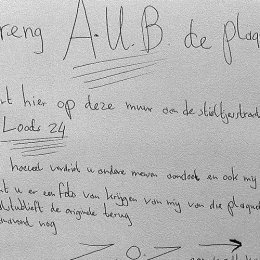 reng A.U.B. de plaq
t hier op deze muur aan de stieltjesstraat
Loods 24
hoeveel verdriet u andere mensen aandoet en ook mij
t u er een foto van krijgen van mij van die plaquet
alstublieft de originele terug
navond nog